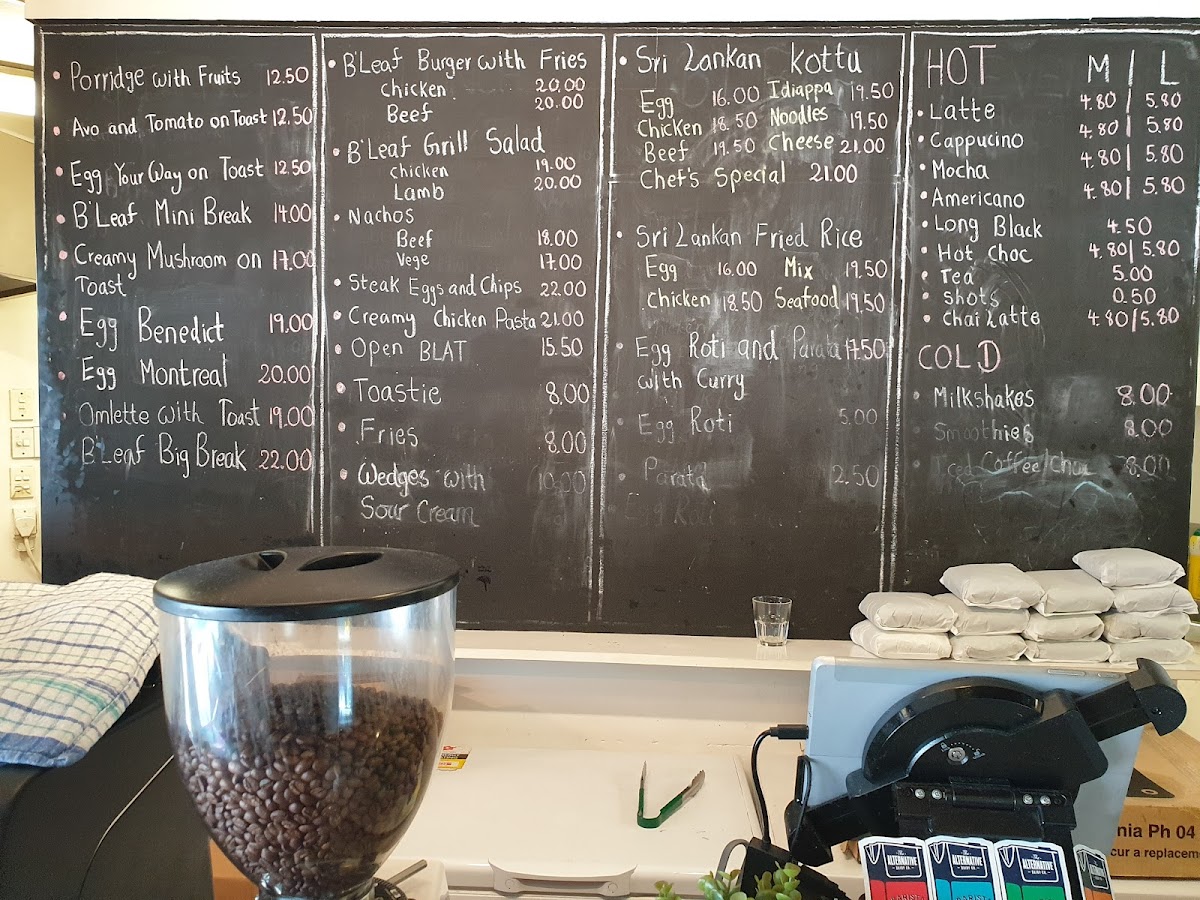 Porridge with Fruits 12.50
Avo and Tomato on Toast 12.50
Egg Your Way on Toast 12.50
B'Leaf Mini Break 14.00
Creamy Mushroom on 17.00
Toast
Egg Benedict 19.00
Egg Montreal 20.00
Omlette with Toast 19.00
B'Leaf Big Break 22.00
B'Leaf Burger with Fries
chicken 20.00
Beef 20.00
B'Leaf Grill Salad
chicken 19.00
Lamb 20.00
Nachos
Beef 18.00
Vege 17.00
Steak Eggs and Chips 22.00
Creamy Chicken Pasta 21.00
Open BLAT 15.50
Toastie 8.00
Fries 8.00
Wedges with 10.00
Sour Cream
Sri Lankan Kottu
Egg 16.00 Idiappa 19.50
Chicken 18.50 Noodles 19.50
Beef 19.50 Cheese 21.00
Chef's Special 21.00
Sri Lankan Fried Rice
Egg 16.00 Mix 19.50
chicken 18.50 Seafood 19.50
Egg Roti and Parata 17.50
with Curry
Egg Roti 5.00
Parata 2.50
Egg Roti
HOT M | L
Latte 4.80 / 5.80
Cappucino 4.80 / 5.80
Mocha 4.80 / 5.80
Americano 4.80 / 5.80
Long Black 4.50
Hot Choc 4.80 / 5.80
Tea 5.00
shots 0.50
chai Latte 4.80 / 5.80
COLD
Milkshakes 8.00
Smoothies 8.00
Iced Coffee/chai 8.00
nia Ph 04
cur a replacem
The ALTERNATIVE DAIRY CO.
The ALTERNATIVE DAIRY CO.
The ALTERNATIVE DAIRY CO.
BARISTA